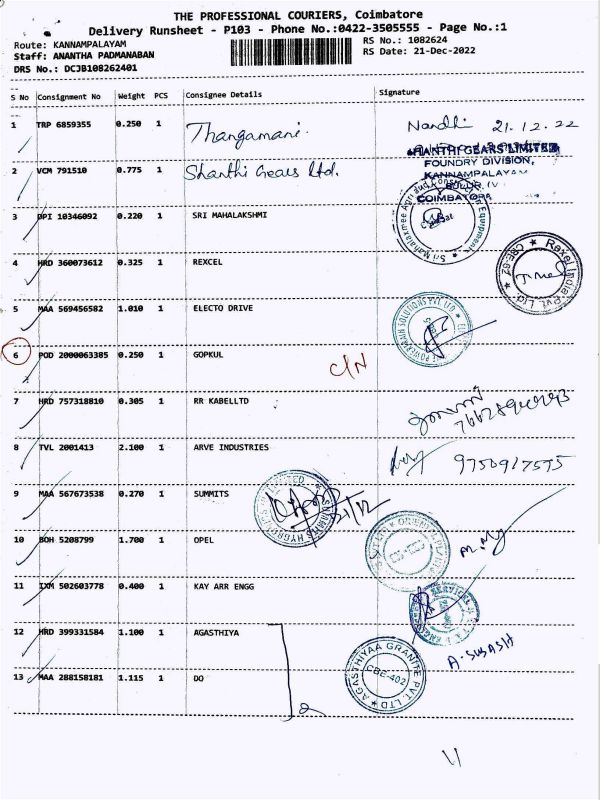 THE PROFESSIONAL COURIERS, Coimbatore
Delivery Runsheet - P103 - Phone No.:0422-3505555 - Page No.:1
Route: KANNAMPALAYAM RS No.: 1082624
Staff: ANANTHA PADMANABAN RS Date: 21-Dec-2022
DRS No.: DCJB108262401
S No Consignment No Weight PCS Consignee Details Signature
1 TRP 6859355 0.250 1 Thangamani. Nandhi 21.12.22
SHANTHI GEARS LIMITED
FOUNDRY DIVISION,
2 VCM 791510 0.775 1 Shanthi Gears Ltd. KANNAMPALAYAM
COIMBATORE
3 DPI 10346092 0.220 1 SRI MAHALAKSHMI
4 HRD 360073612 0.325 1 REXCEL Rexel India Pvt. Ltd. ★ CBE-62 ★
5 MAA 569456582 1.010 1 ELECTO DRIVE
6 POD 2000063385 0.250 1 GOPKUL C/N
7 HRD 757318810 0.305 1 RR KABELLTD
8 TVL 2001413 2.100 1 ARVE INDUSTRIES 9750917575
9 MAA 567673538 0.270 1 SUMMITS 21/12
10 BOH 5208799 1.700 1 OPEL
11 IXM 502603778 0.400 1 KAY ARR ENGG
12 HRD 399331584 1.100 1 AGASTHIYA A. SUBASH
13 MAA 288158181 1.115 1 DO AGASTHIYAA GRANITE PVT. LTD ★ CBE-402
2
11